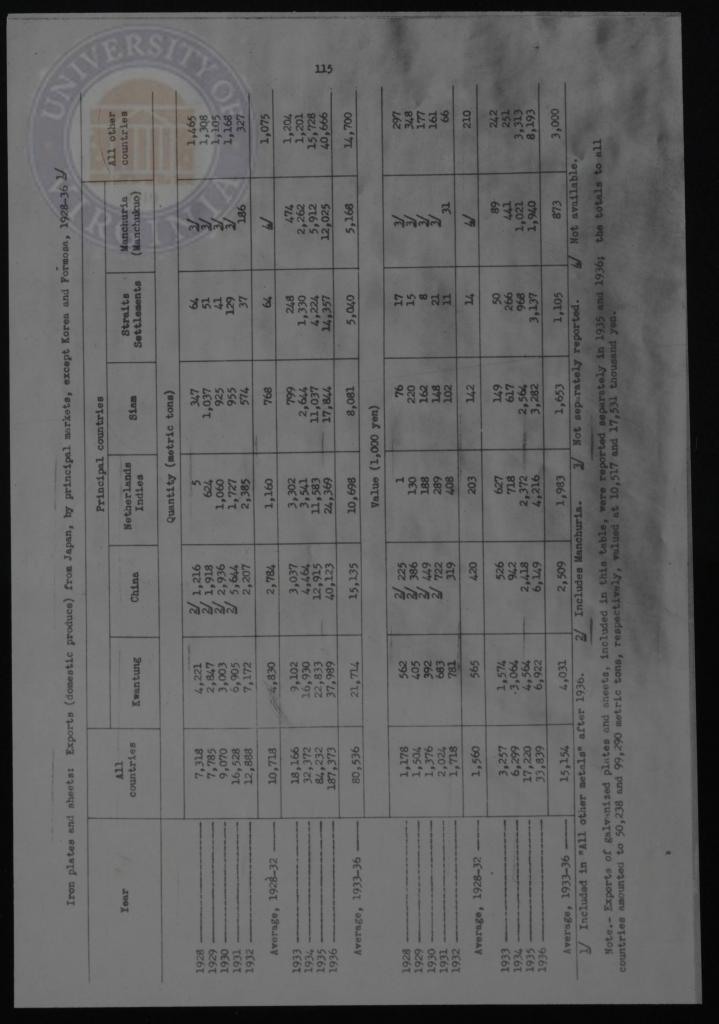 115
UNIVERSITY OF VIRGINIA
Iron plates and sheets: Exports (domestic produce) from Japan, by principal markets, except Korea and Formosa, 1928-36 1/
Principal countries
Year | All countries | Kwantung | China | Netherlands Indies | Siam | Straits Settlements | Manchuria (Manchukuo) | All other countries
Quantity (metric tons)
1928 | 7,318 | 4,221 | 2/ 1,216 | 5 | 347 | 64 | 3/ | 1,465
1929 | 7,785 | 2,847 | 2/ 1,918 | 624 | 1,037 | 51 | 3/ | 1,308
1930 | 9,070 | 3,003 | 2/ 2,936 | 1,060 | 925 | 41 | 3/ | 1,105
1931 | 16,528 | 6,905 | 2/ 5,644 | 1,727 | 955 | 129 | 3/ | 1,168
1932 | 12,888 | 7,172 | 2,207 | 2,385 | 574 | 37 | 186 | 327
Average, 1928-32 | 10,718 | 4,830 | 2,784 | 1,160 | 768 | 64 | 4/ | 1,075
1933 | 18,166 | 9,102 | 3,037 | 3,302 | 799 | 248 | 474 | 1,204
1934 | 32,372 | 16,930 | 4,464 | 3,541 | 2,644 | 1,330 | 2,262 | 1,201
1935 | 84,232 | 22,833 | 12,915 | 11,583 | 11,037 | 4,224 | 5,912 | 15,728
1936 | 187,373 | 37,989 | 40,123 | 24,369 | 17,844 | 14,357 | 12,025 | 40,666
Average, 1933-36 | 80,536 | 21,714 | 15,135 | 10,698 | 8,081 | 5,040 | 5,168 | 14,700
Value (1,000 yen)
1928 | 1,178 | 562 | 2/ 225 | 1 | 76 | 17 | 3/ | 297
1929 | 1,504 | 405 | 2/ 386 | 130 | 220 | 15 | 3/ | 348
1930 | 1,376 | 392 | 2/ 449 | 188 | 162 | 8 | 3/ | 177
1931 | 2,024 | 683 | 2/ 722 | 289 | 148 | 21 | 3/ | 161
1932 | 1,718 | 781 | 319 | 408 | 102 | 11 | 31 | 66
Average, 1928-32 | 1,560 | 565 | 420 | 203 | 142 | 14 | 4/ | 210
1933 | 3,257 | 1,574 | 526 | 627 | 149 | 50 | 89 | 242
1934 | 6,299 | 3,064 | 942 | 718 | 617 | 266 | 441 | 251
1935 | 17,220 | 4,564 | 2,418 | 2,372 | 2,564 | 968 | 1,021 | 3,313
1936 | 33,839 | 6,922 | 6,149 | 4,216 | 3,282 | 3,137 | 1,940 | 8,193
Average, 1933-36 | 15,154 | 4,031 | 2,509 | 1,983 | 1,653 | 1,105 | 873 | 3,000
1/ Included in "All other metals" after 1936. 2/ Includes Manchuria. 3/ Not separately reported. 4/ Not available.
Note.- Exports of galvanized plates and sheets, included in this table, were reported separately in 1935 and 1936; the totals to all
countries amounted to 50,238 and 99,290 metric tons, respectively, valued at 10,517 and 17,531 thousand yen.